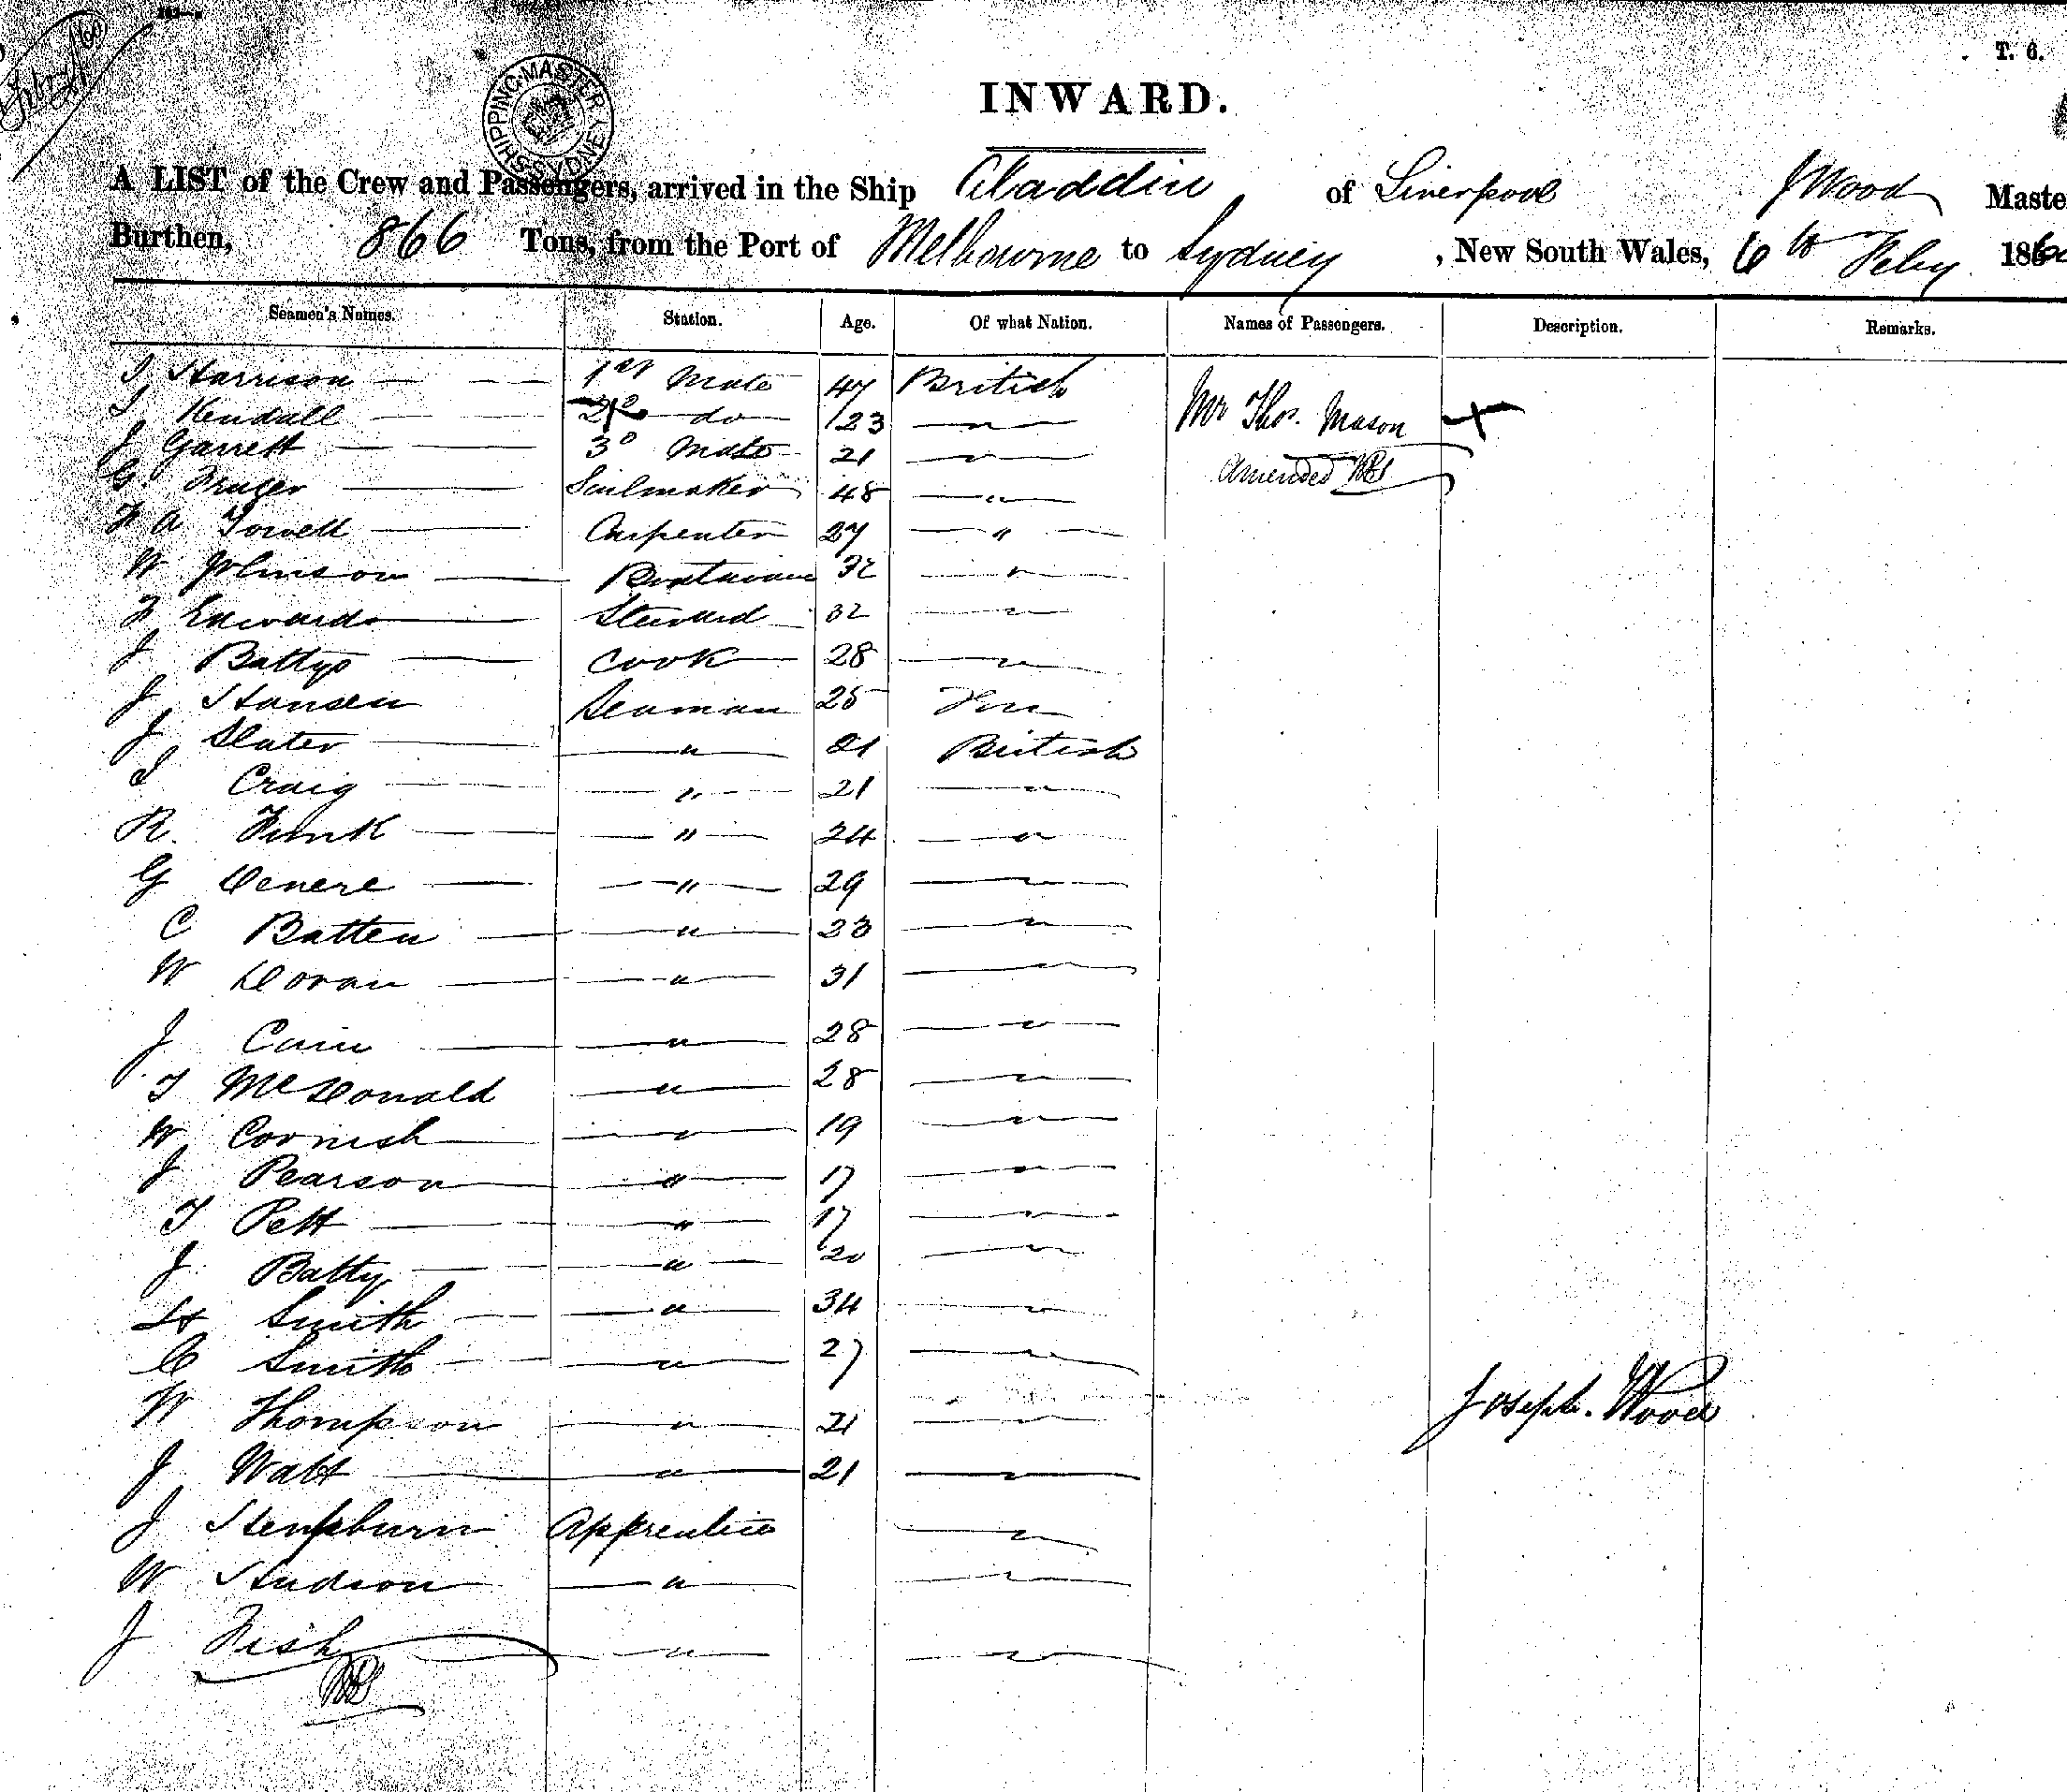 T. 6.
SHIPPING MASTER SYDNEY
INWARD.
A LIST of the Crew and Passengers, arrived in the Ship Aladdin of Liverpool J Wood Maste
Burthen, 866 Tons, from the Port of Melbourne to Sydney , New South Wales, 6th Feby 1860
Seamen's Names. Station. Age. Of what Nation. Names of Passengers. Description. Remarks.
Harrison — — 1st Mate 47 British
Kendall — 2d — do — 23 — " — Mr Thos. Mason
J Garrett — 3d Mate 21 — " —
G Fraser — Sailmaker 48 — " — Amended
Towell — Carpenter 27 — " —
W Johnson — Boatswain 32 — " —
Edwards — Steward 32 — " —
J Battye — Cook 28 — " —
J Hansen Seaman 25
J Slater — " — 21 British
Craig — " — 21 — " —
R. Funk — " — 24 — " —
G Venere — " — 29 — " —
C Batten — " — 23 — " —
W Doran — " — 31 — " —
J Cain — " — 28 — " —
T McDonald — " — 28 — " —
W Cornish — " — 19 — " —
J Pearson — " — 17 — " —
T Pett — " — 17 — " —
J Batty — " — 20 — " —
H Smith — " — 34 — " —
C Smith — " — 27 — " —
W Thompson — " — 21 — " —
Joseph. Wood
J Watt — " — 21 — " —
J Hepburn Apprentice — " —
W Hudson — " — — " —
J Fish — " — — " —